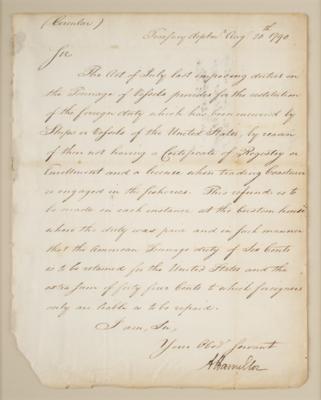 (Circular)
Treasury Departm Augt 20th 1790
Sir
The Act of July last imposing duties on
the Tonnage of Vessels provides for the restitution
of the foreign duty which has been incurred by
Ships or Vessels of the United States, by reason
of their not having a Certificate of Registry or
Enrollment and a license when trading Coastwise
or engaged in the fisheries. This refund is to
be made in each instance at the Custom house
where the duty was paid and in such manner
that the American Tonnage duty of Six Cents
is to be retained for the United States and the
extra sum of forty four Cents to which foreigners
only are liable is to be repaid.
I am, Sir,
Your Obedt Servant
A Hamilton